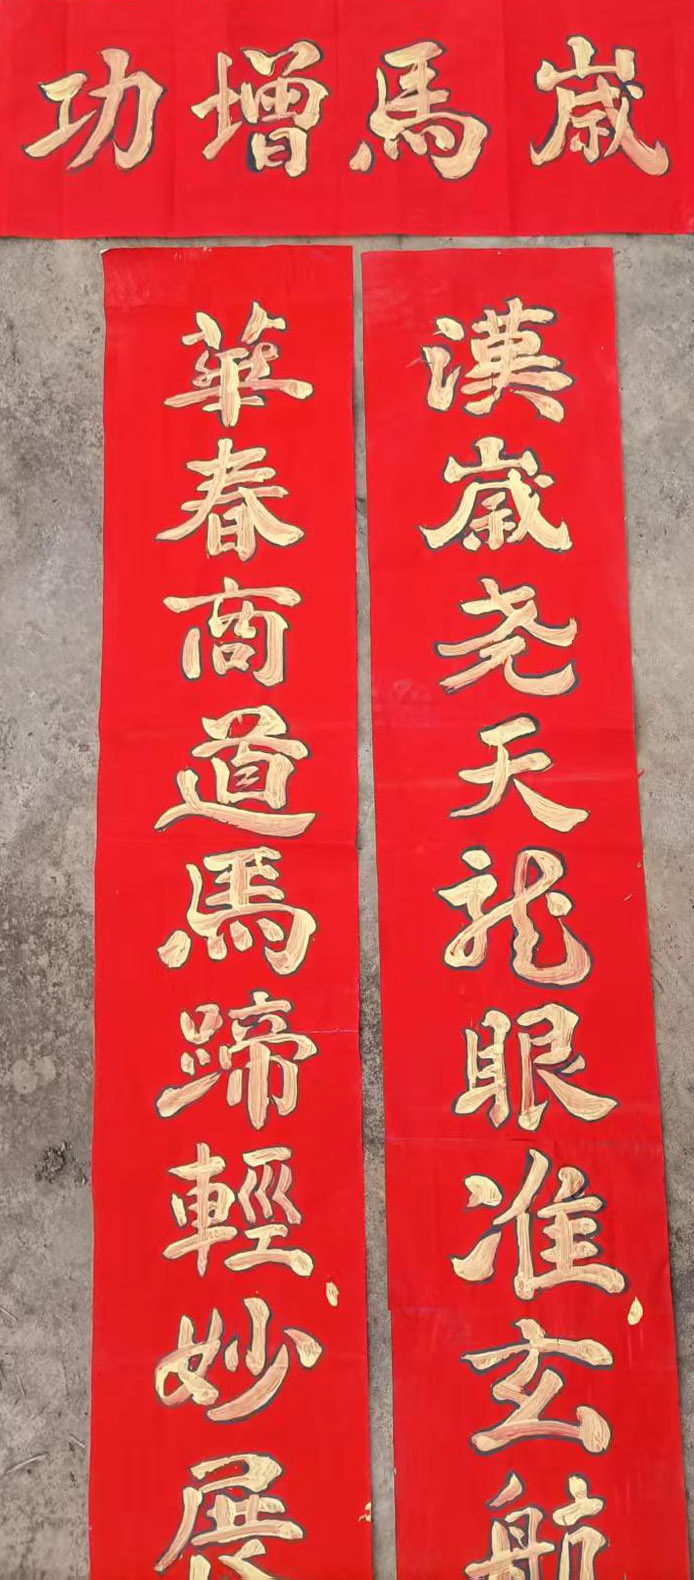 歲馬增功
漢歲尧天龙眼准玄航
華春商道馬蹄輕妙展